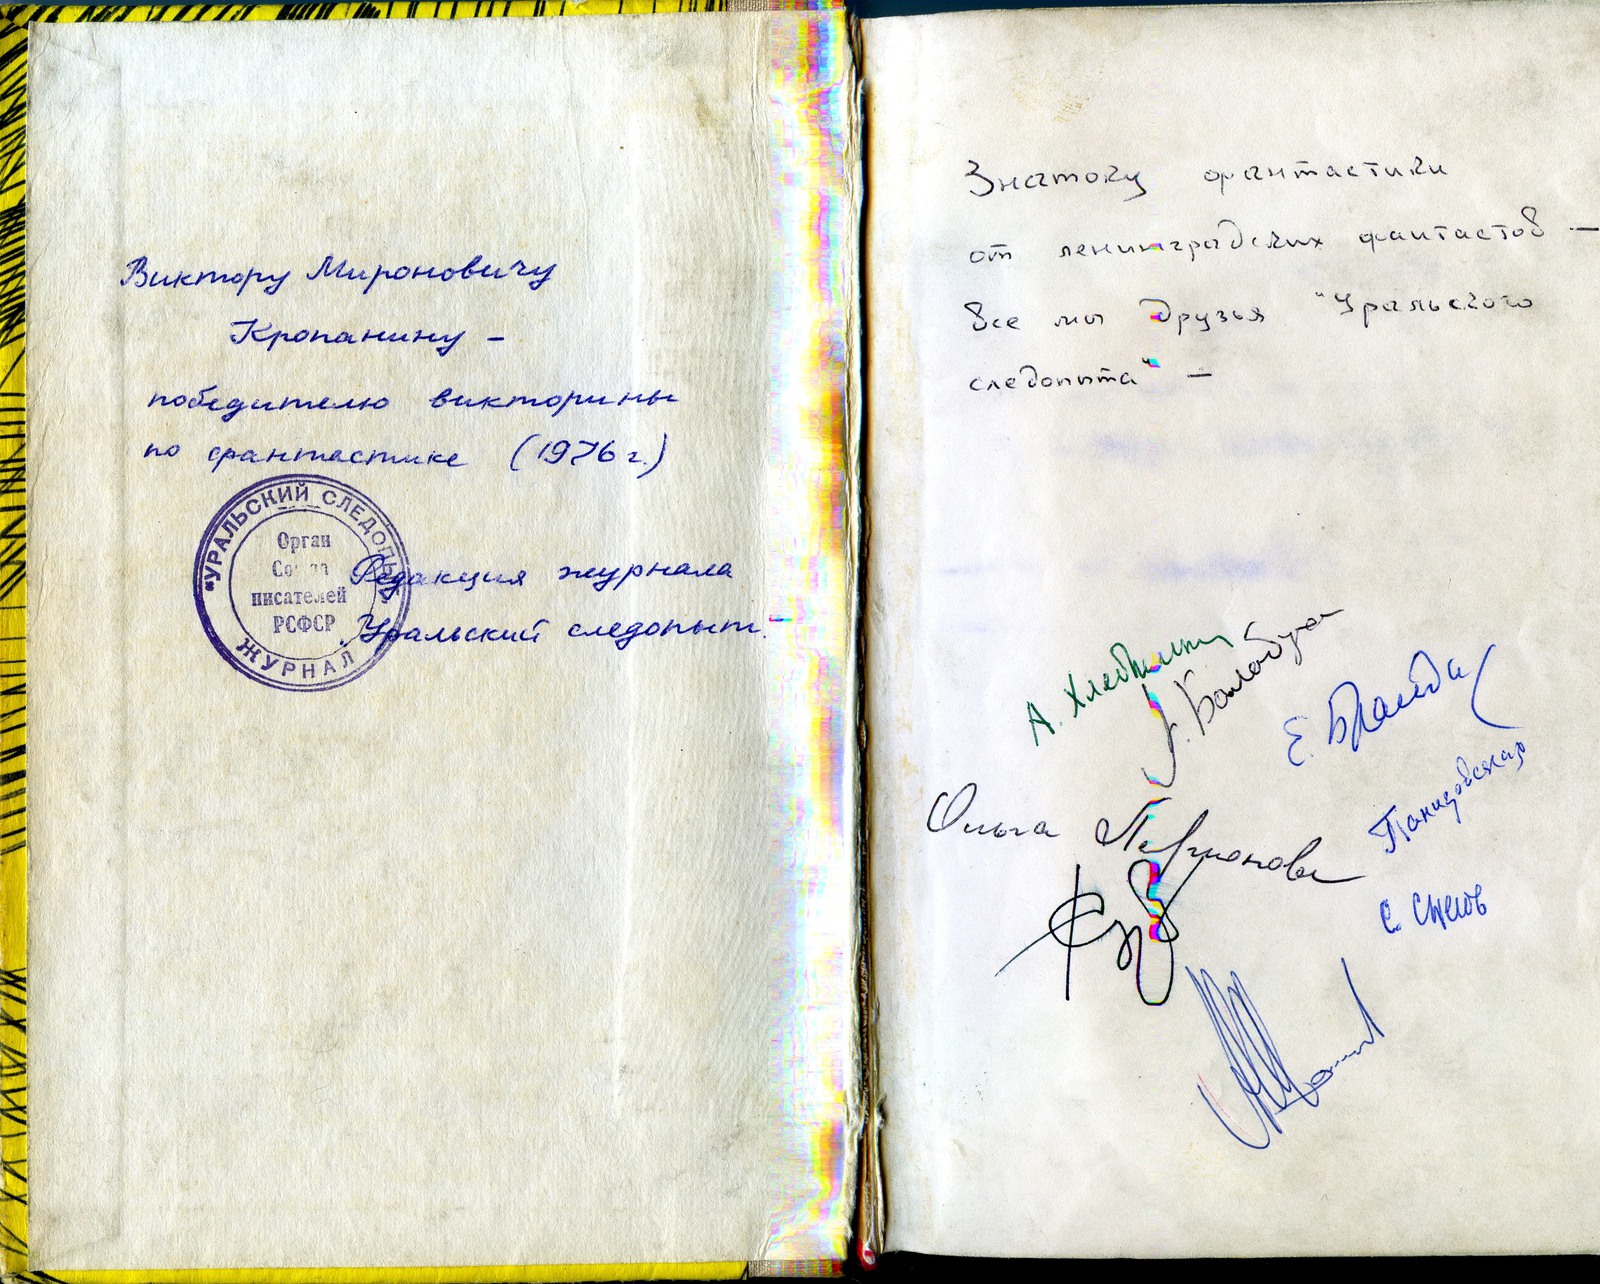 Виктору Мироновичу
Кропанину –
победителю викторины
по фантастике (1976 г.)
"УРАЛЬСКИЙ СЛЕДОПЫТ"
ЖУРНАЛ
Орган
Союза
писателей
РСФСР
Редакция журнала
"Уральский следопыт".
Знатоку фантастики
от ленинградских фантастов –
все мы друзья "Уральского
следопыта" –
А.
Балабуха
Е. Брандис
Ольга Ларионова
Панизовская
С. Снегов